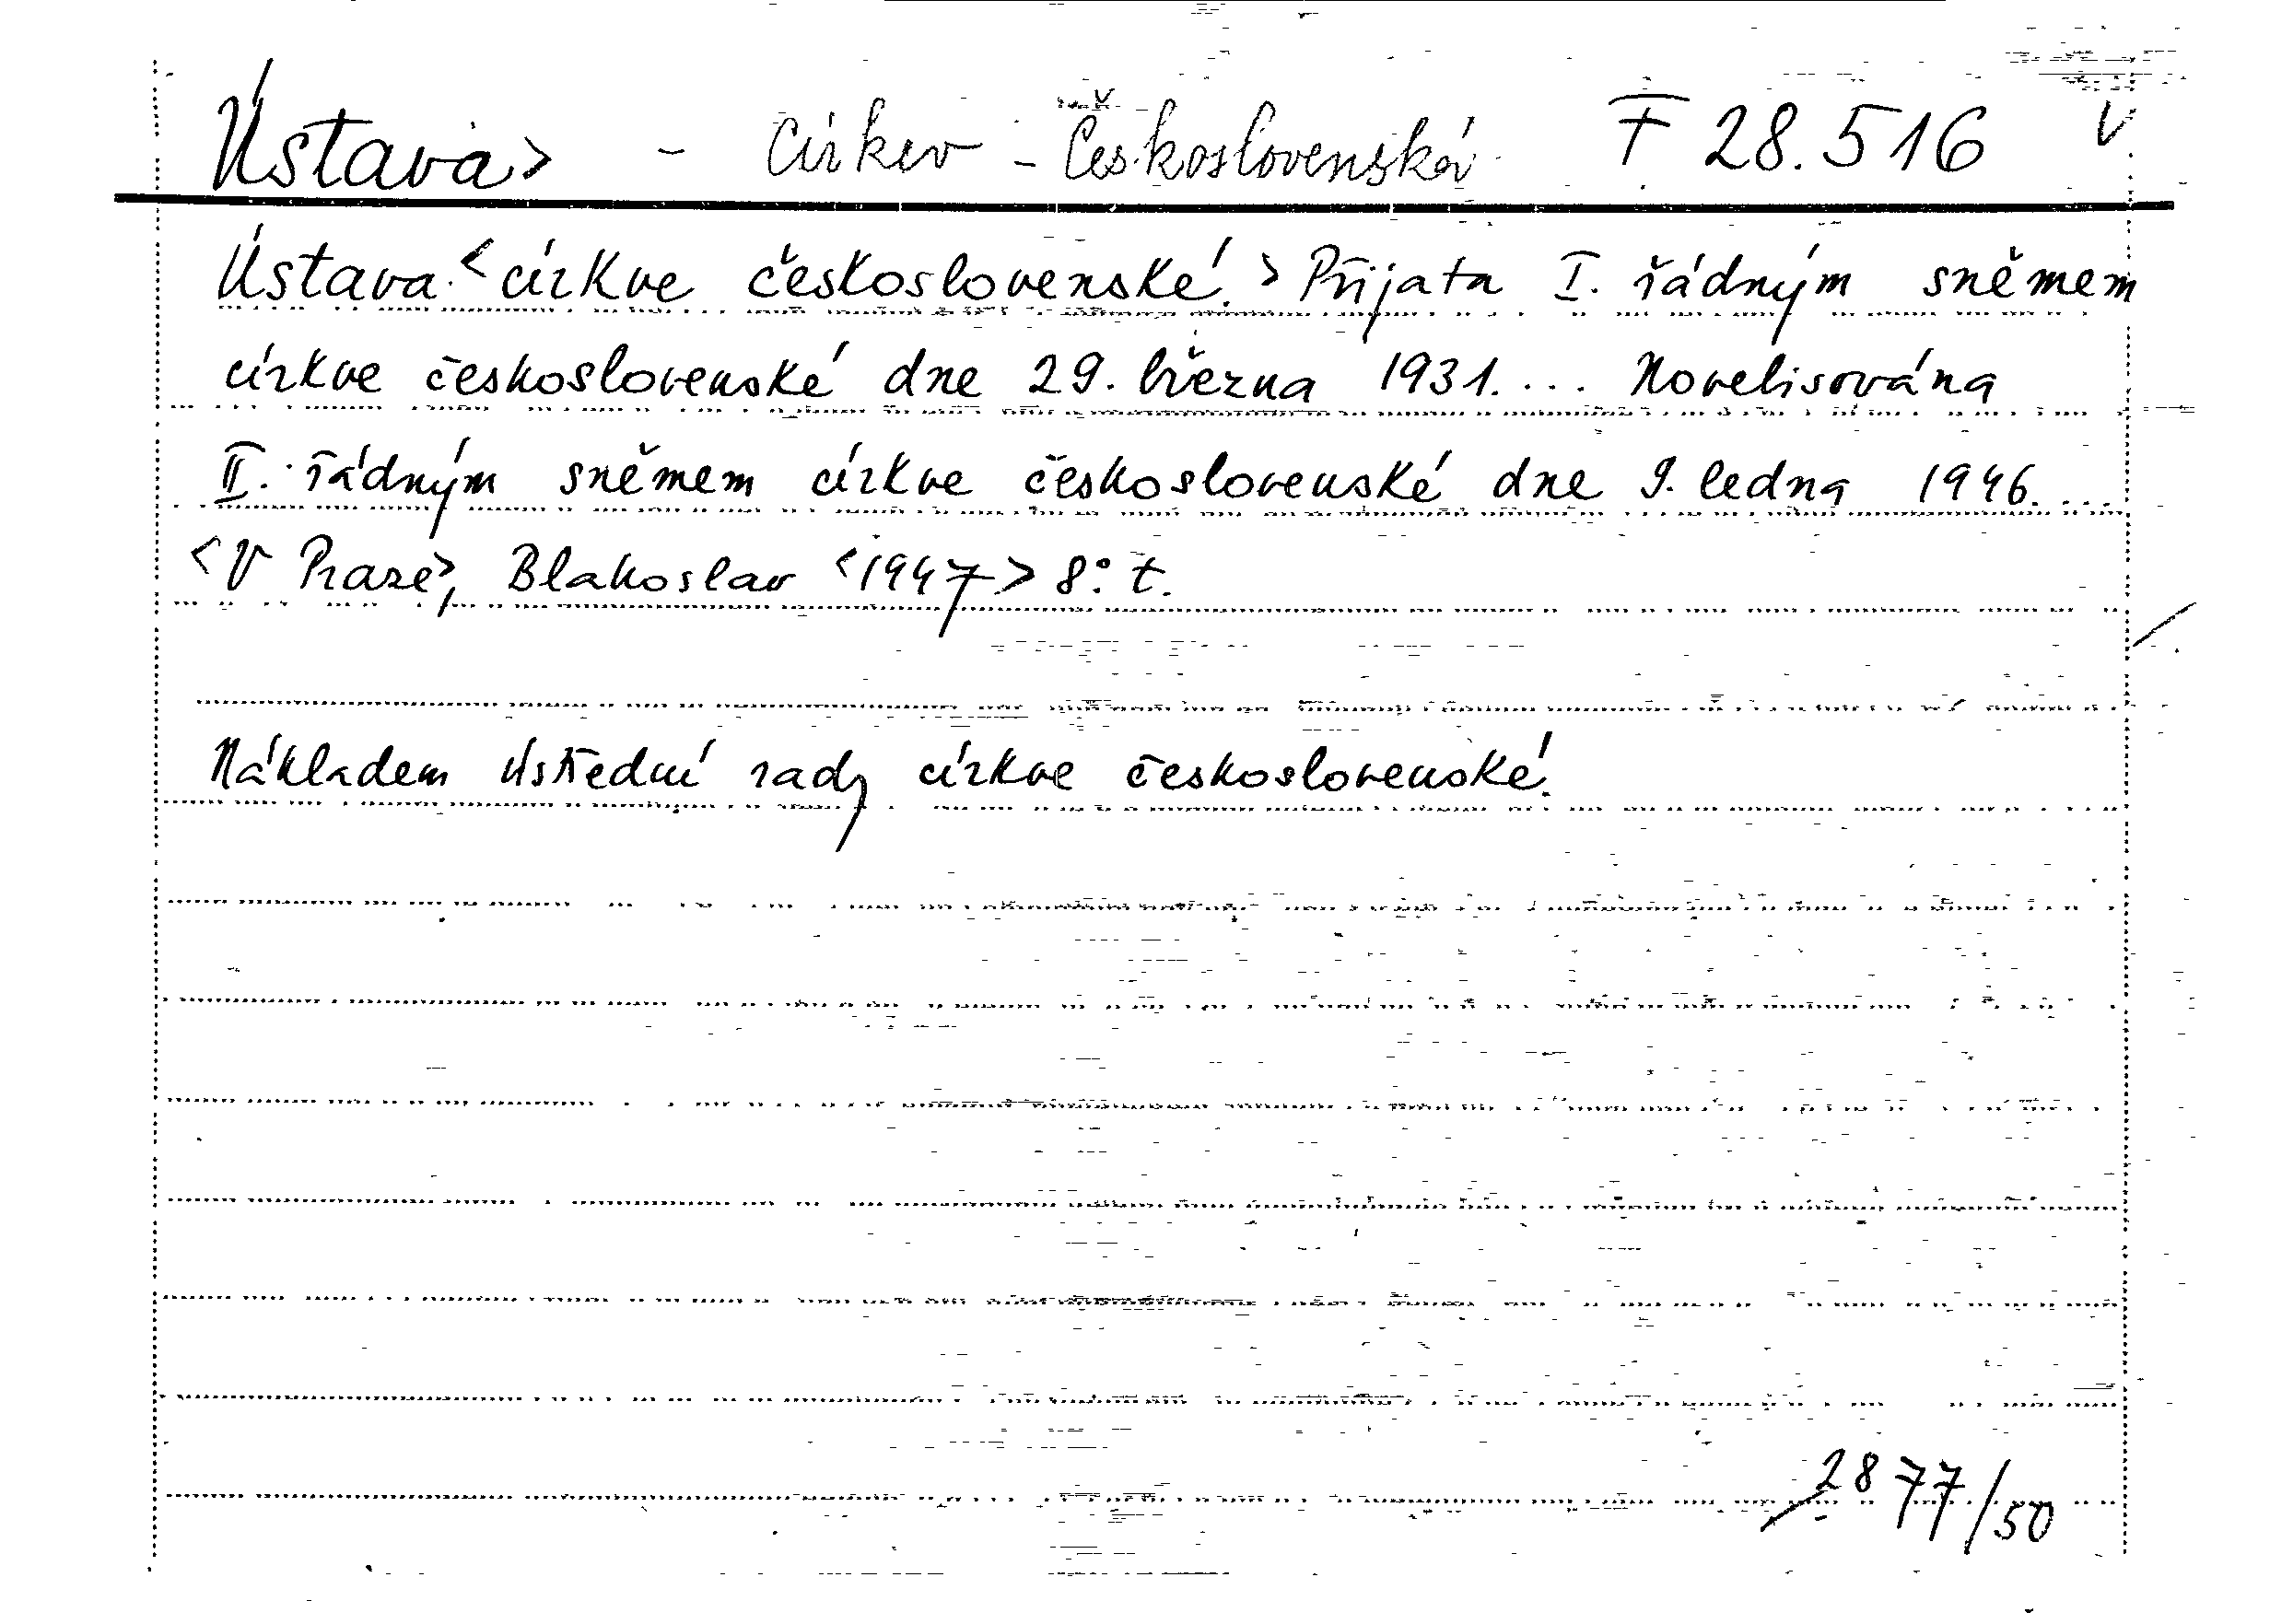 Ústava> - Církev - Československá F 28.516 v
Ústava <církve československé.> Přijata I. řádným sněmem
církve československé dne 29. března 1931. ... Novelisována
II. řádným sněmem církve československé dne 9. ledna 1946. ...
<V Praze>, Blahoslav <1947> 8° t.
Nákladem Ústřední rady církve československé.
2877/50